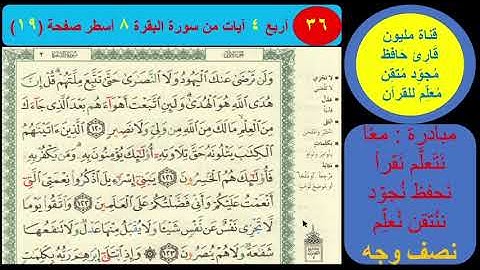 ٣٦ أربع ٤ آيات من سورة البقرة ٨ أسطر صفحة (١٩)
قناة مليون
قارئ حافظ
مُجوّد مُتقِن
مُعلّم للقرآن
مبادرة : معًا
نَتعلّم نَقرأ
نَحفظ نُجوّد
نَتْقن نُعلّم
نصف وجه
وَلَن تَرْضَىٰ عَنكَ ٱلْيَهُودُ وَلَا ٱلنَّصَٰرَىٰ حَتَّىٰ تَتَّبِعَ مِلَّتَهُمْ قُلْ إِنَّ
هُدَى ٱللَّهِ هُوَ ٱلْهُدَىٰ وَلَئِنِ ٱتَّبَعْتَ أَهْوَآءَهُم بَعْدَ ٱلَّذِى جَآءَكَ
مِنَ ٱلْعِلْمِ مَا لَكَ مِنَ ٱللَّهِ مِن وَلِىٍّ وَلَا نَصِيرٍ ١٢٠ ٱلَّذِينَ ءَاتَيْنَٰهُمُ
ٱلْكِتَٰبَ يَتْلُونَهُۥ حَقَّ تِلَاوَتِهِۦٓ أُو۟لَٰٓئِكَ يُؤْمِنُونَ بِهِۦ وَمَن يَكْفُرْ بِهِۦ
فَأُو۟لَٰٓئِكَ هُمُ ٱلْخَٰسِرُونَ ١٢١ يَٰبَنِىٓ إِسْرَٰٓءِيلَ ٱذْكُرُوا۟ نِعْمَتِىَ ٱلَّتِىٓ
أَنْعَمْتُ عَلَيْكُمْ وَأَنِّى فَضَّلْتُكُمْ عَلَى ٱلْعَٰلَمِينَ ١٢٢ وَٱتَّقُوا۟ يَوْمًا
لَّا تَجْزِى نَفْسٌ عَن نَّفْسٍ شَيْـًٔا وَلَا يُقْبَلُ مِنْهَا عَدْلٌ وَلَا تَنفَعُهَا
شَفَٰعَةٌ وَلَا هُمْ يُنصَرُونَ ١٢٣ وَإِذِ ٱبْتَلَىٰٓ إِبْرَٰهِۦمَ رَبُّهُۥ بِكَلِمَٰتٍ